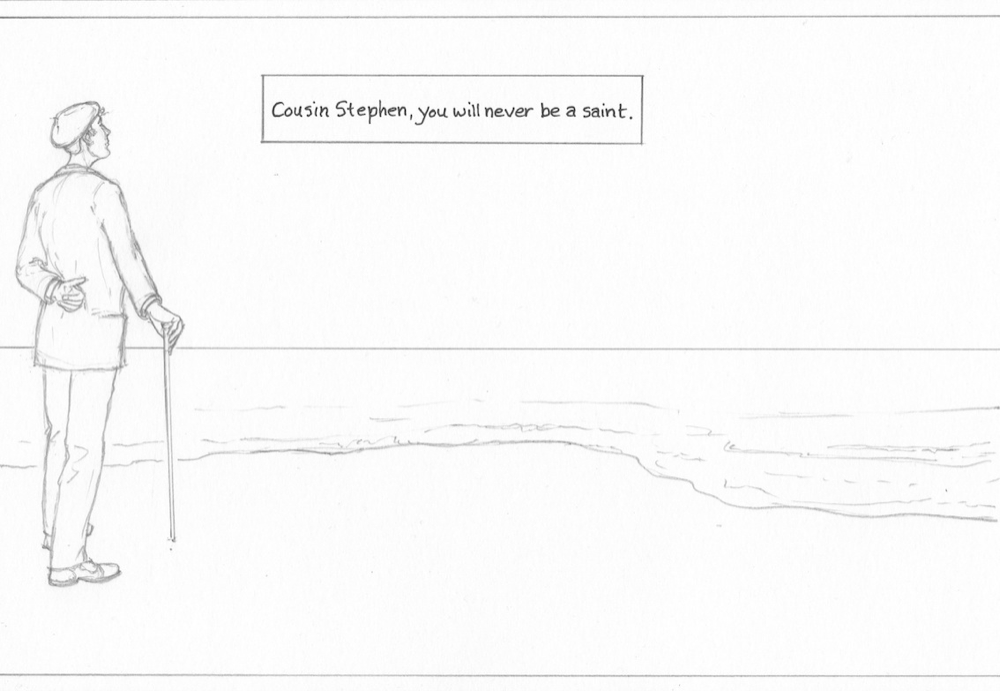 Cousin Stephen, you will never be a saint.